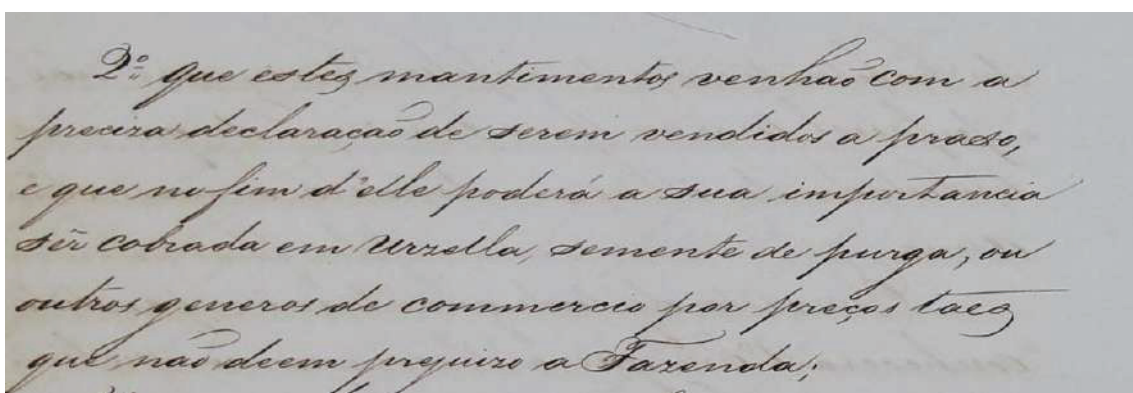 2º que estes mantimentos venhão com a
preciza declaração de serem vendidos a praso,
e que no fim d'elle poderá a sua importancia
sêr cobrada em Urzella, semente de purga, ou
outros generos de commercio por preços taes
que não deem prejuizo a Fazenda;